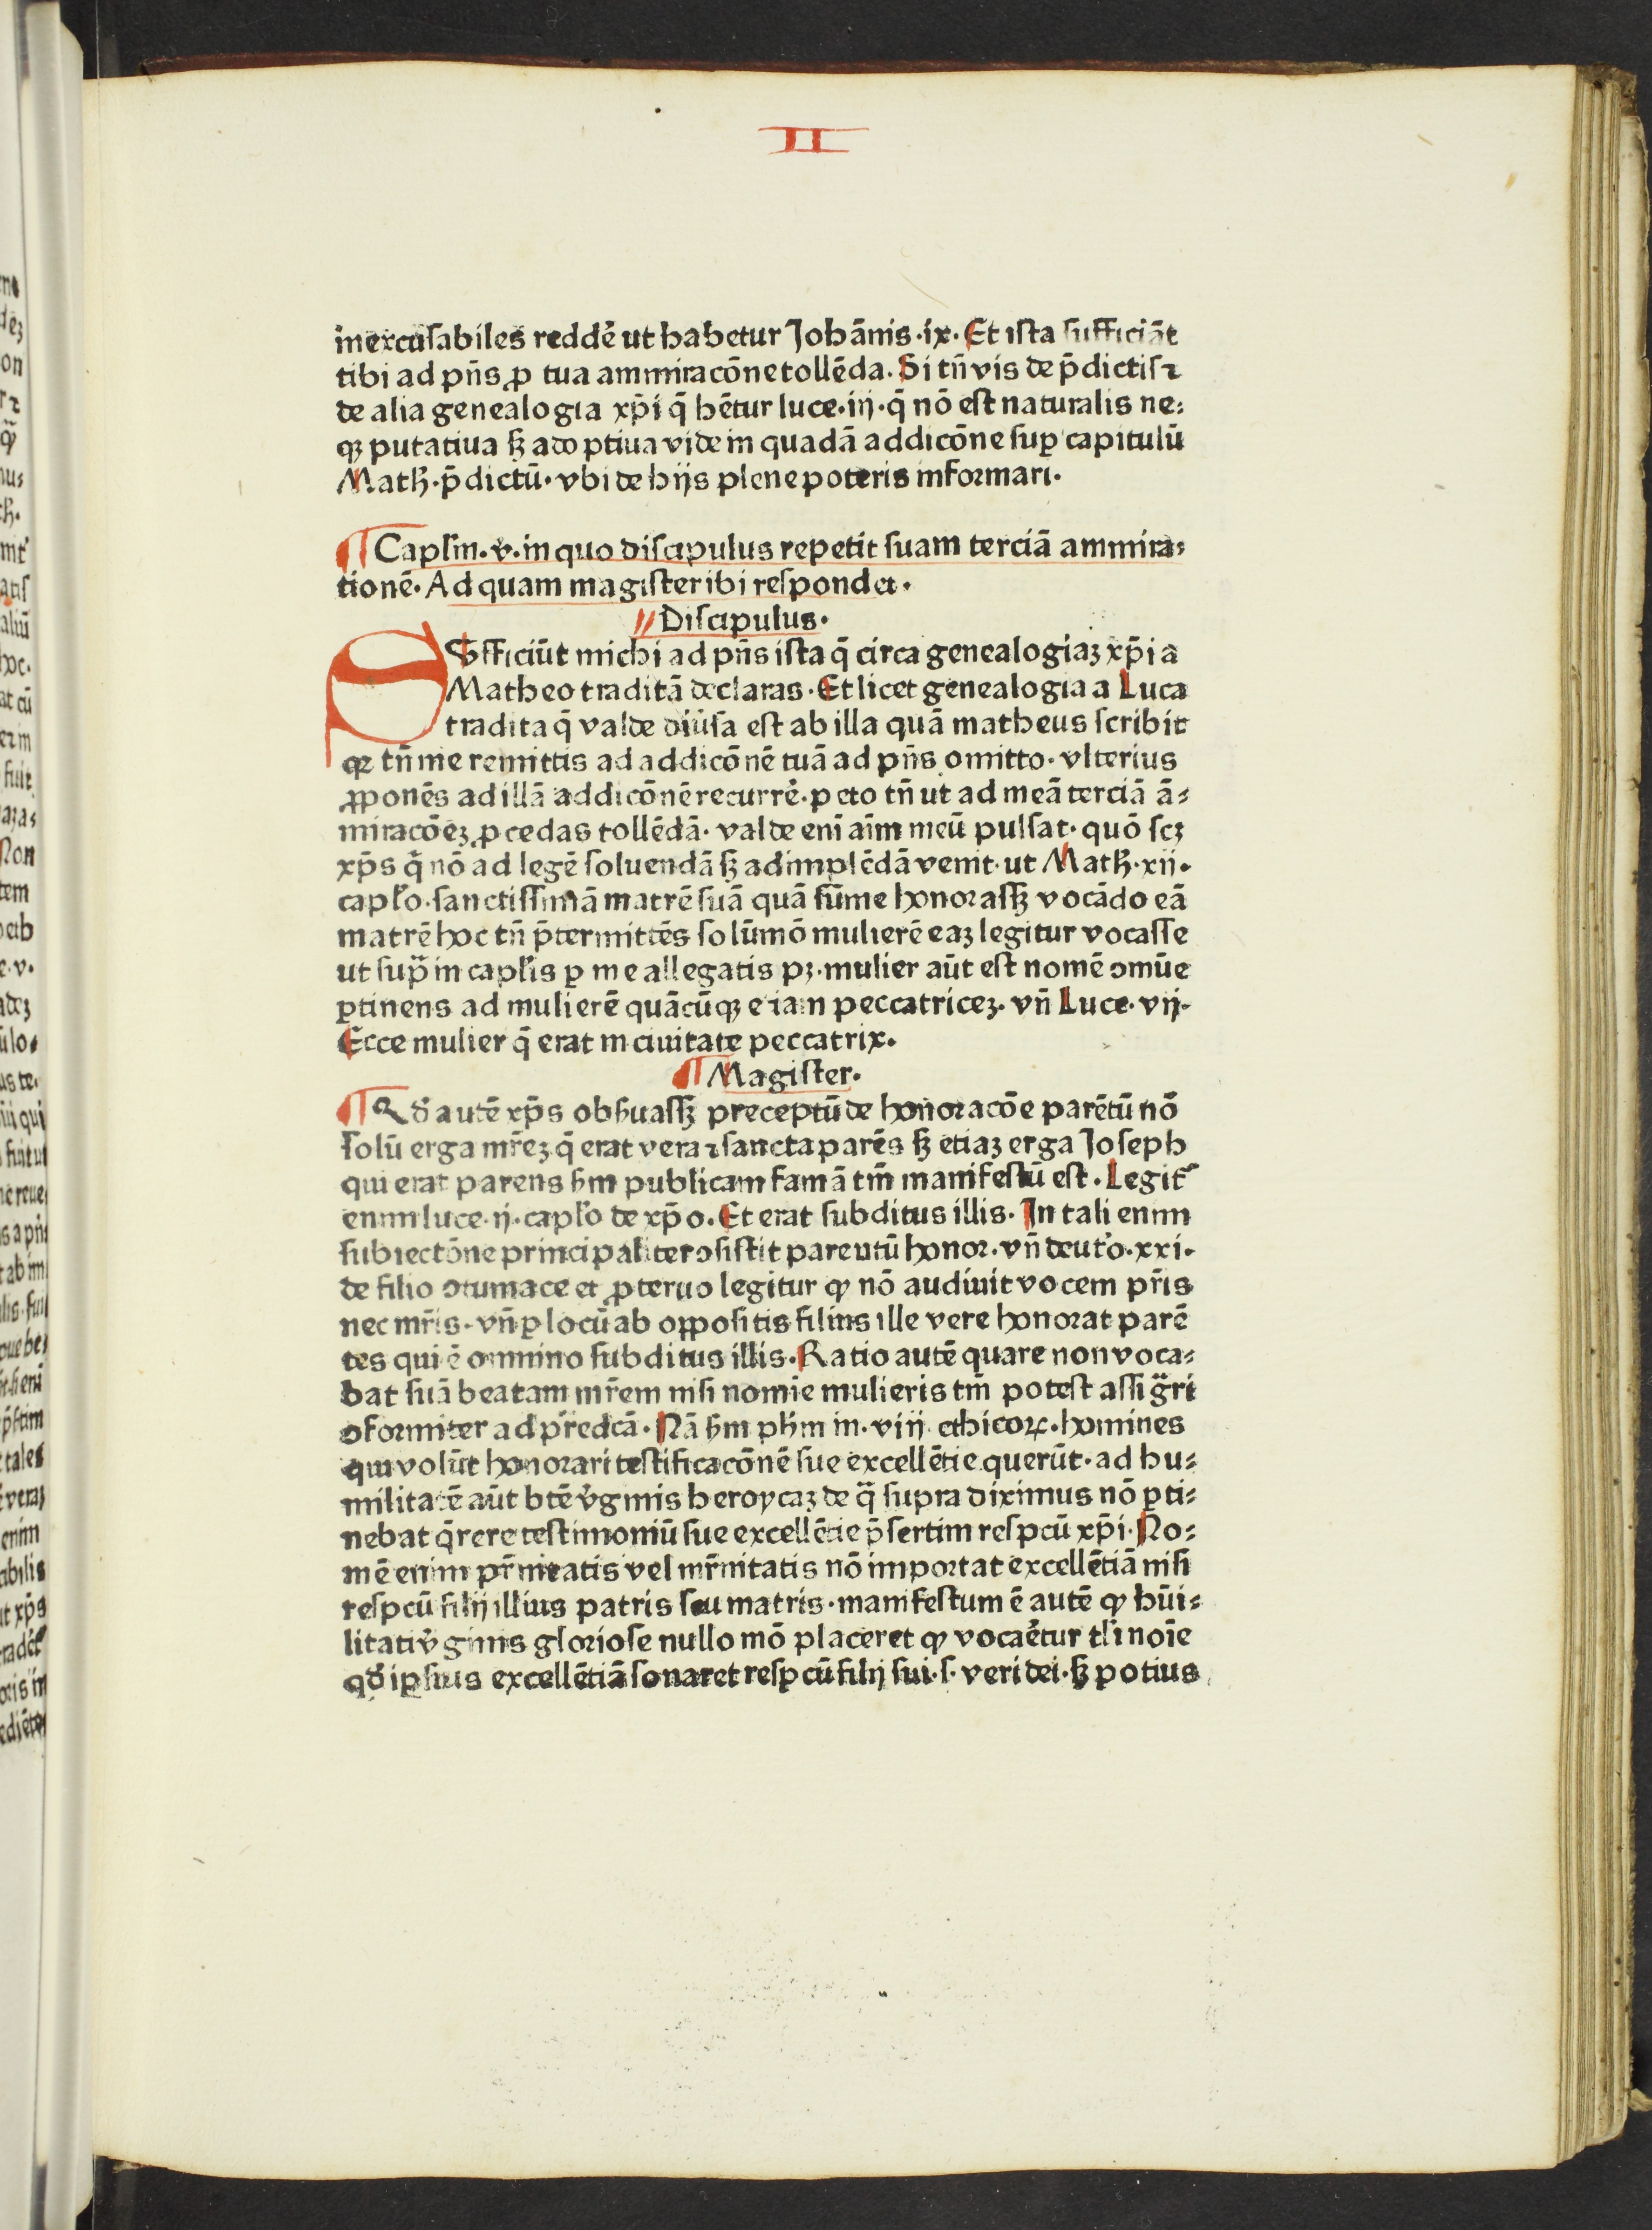 II
inexcusabiles reddē ut habetur Johānis·ix· Et ista sufficiāt
tibi ad pn̄s ꝓ tua ammiracōne tollēda. Si tn̄ vis de p̄dictis ⁊
de alia genealogia xp̄i q̄ hētur luce·iij·q̄ nō est naturalis ne⸗
qꝫ putatiua sꝫ adoptiua vide in quadā addicōne suꝑ capitulū
Matħ·p̄dictū· vbi de hijs plene poteris informari.
¶ Capl̄m·v·in quo discipulus repetit suam terciā ammira⸗
tionē· Ad quam magister ibi respondet.
Discipulus·
SVfficiūt michi ad pn̄s ista q̄ circa genealogiaꝫ xp̄i a
Matheo traditā declaras· Et licet genealogia a Luca
tradita q̄ valde diūsa est ab illa quā matheus scribit
qꝛ tn̄ me remittis ad addicōnē tuā ad pn̄s omitto· vlterius
ꝓponēs ad illā addicōnē recurrē·peto tn̄ ut ad meā terciā ā⸗
miracōeꝫ ꝓcedas tollēdā· valde enī aīm meū pulsat· quō scꝫ
xp̄s q̄ nō ad legē soluendā sꝫ adimplēdā venit· ut Matħ·xij·
capl̄o·sanctissimā matrē suā quā sūme honorasſꝫ vocādo eā
matrē hoc tn̄ p̄termittēs solūmō mulierē eaꝫ legitur vocasse
ut sup̄ in capl̄is ꝑ me allegatis pꝫ·mulier aūt est nomē ↄmūe
ꝑtinens ad mulierē quācūqꝫ etiam peccatriceꝫ· vn̄ Luce·vij·
Ecce mulier q̄ erat in ciuitate peccatrix.
¶ Magister.
¶ Qd̄ autē xp̄s obẜuasſꝫ preceptū de honoracōe parētū nō
solū erga mr̄eꝫ q̄ erat vera ⁊ sancta parēs sꝫ etiaꝫ erga Joseph
qui erat parens ẜm publicam famā tm̄ manifestū est· Legit᷑
enim luce·ij·capl̄o de xp̄o· Et erat subditus illis· In tali enim
subiectōne principaliter ↄsistit parentū honor· vn̄ deut̄o·xxi·
de filio ↄtumace et ꝓteruo legitur ꝙ nō audiuit vocem pr̄is
nec mr̄is· vn̄ ꝑ locū ab oppositis filius ille vere honorat parē
tes qui ē omnino subditus illis· Ratio autē quare non voca⸗
bat suā beatam mr̄em nisi nomīe mulieris tm̄ potest assig̃ri
ↄformiter ad pr̄edcā· Nā ẜm pħm in·viij ethicoꝝ·homines
qui volūt honorari testificacōnē sue excellētie querūt·ad hu⸗
militatē aūt btē v̄ginis heroycaꝫ de q̄ supra diximus nō ꝑti⸗
nebat q̄rere testimoniū sue excellētie p̄sertim respcū xp̄i· No⸗
mē enim pr̄nitatis vel mr̄nitatis nō importat excellētiā nisi
respcū filij illius patris seu matris·manifestum ē autē ꝙ hūi⸗
litati v̄ginis gloriose nullo mō placeret ꝙ vocaretur tli noīe
qd̄ ipsius excellētiā sonaret respcū filij sui·s·veri dei·sꝫ potius